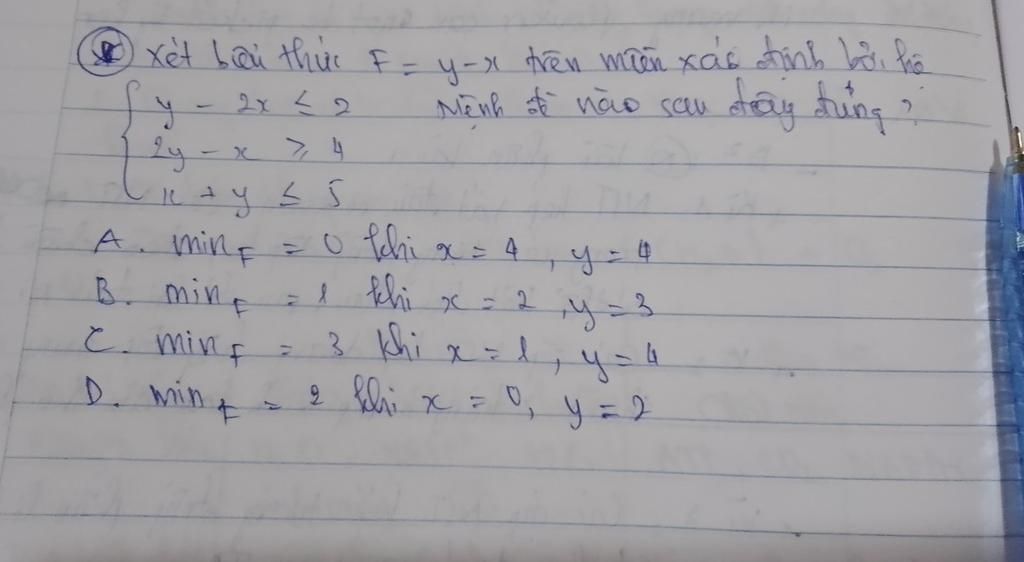 Xét biểu thức F = y-x trên miền xác định bởi hệ
y - 2x ≤ 2 Mệnh đề nào sau đây đúng?
2y - x ≥ 4
x + y ≤ 5
A. min_F = 0 khi x = 4, y = 4
B. min_F = 1 khi x = 2, y = 3
C. min_F = 3 khi x = 1, y = 4
D. min_F = 2 khi x = 0, y = 2